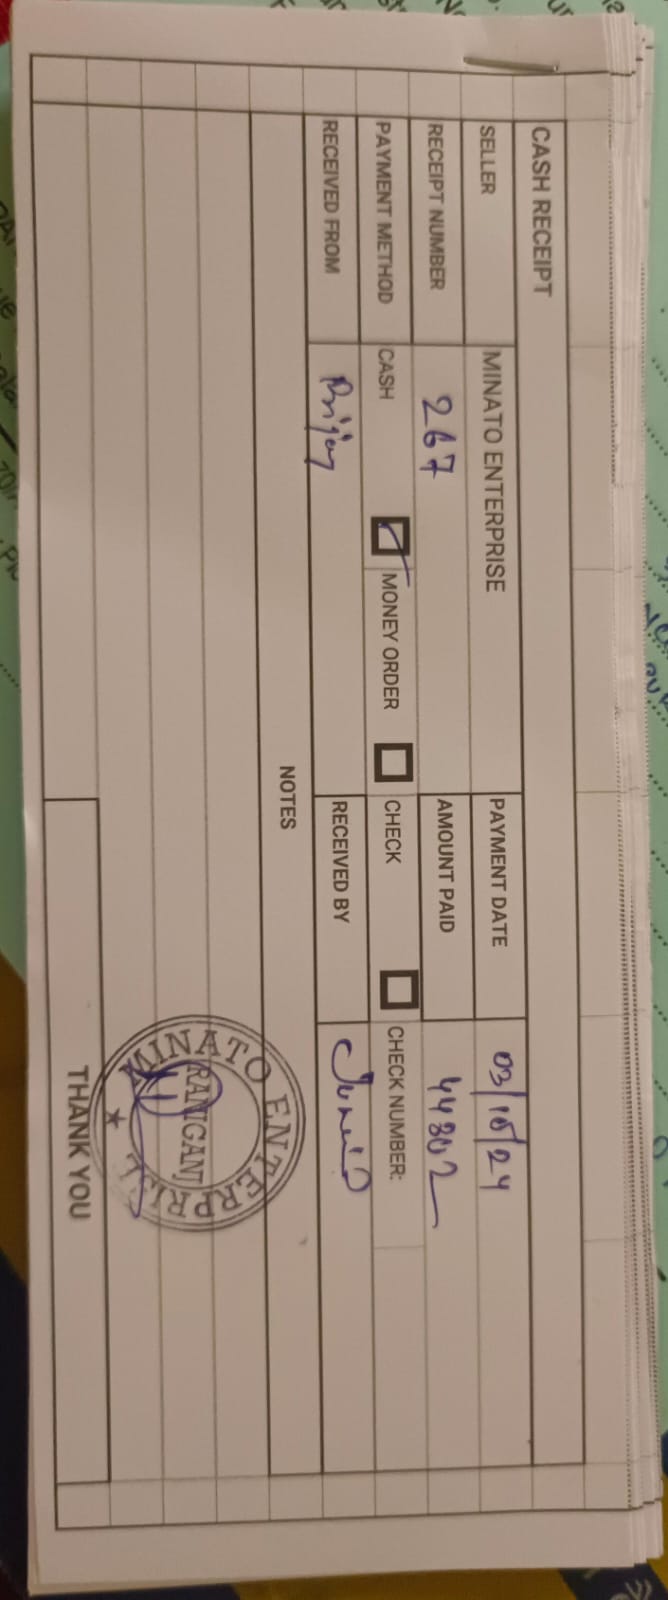 CASH RECEIPT
SELLER MINATO ENTERPRISE PAYMENT DATE 03/10/24
RECEIPT NUMBER 267 AMOUNT PAID 44302
PAYMENT METHOD CASH MONEY ORDER CHECK CHECK NUMBER:
RECEIVED FROM Brijay RECEIVED BY
NOTES
MINATO ENTERPRISE
RANIGANJ
THANK YOU